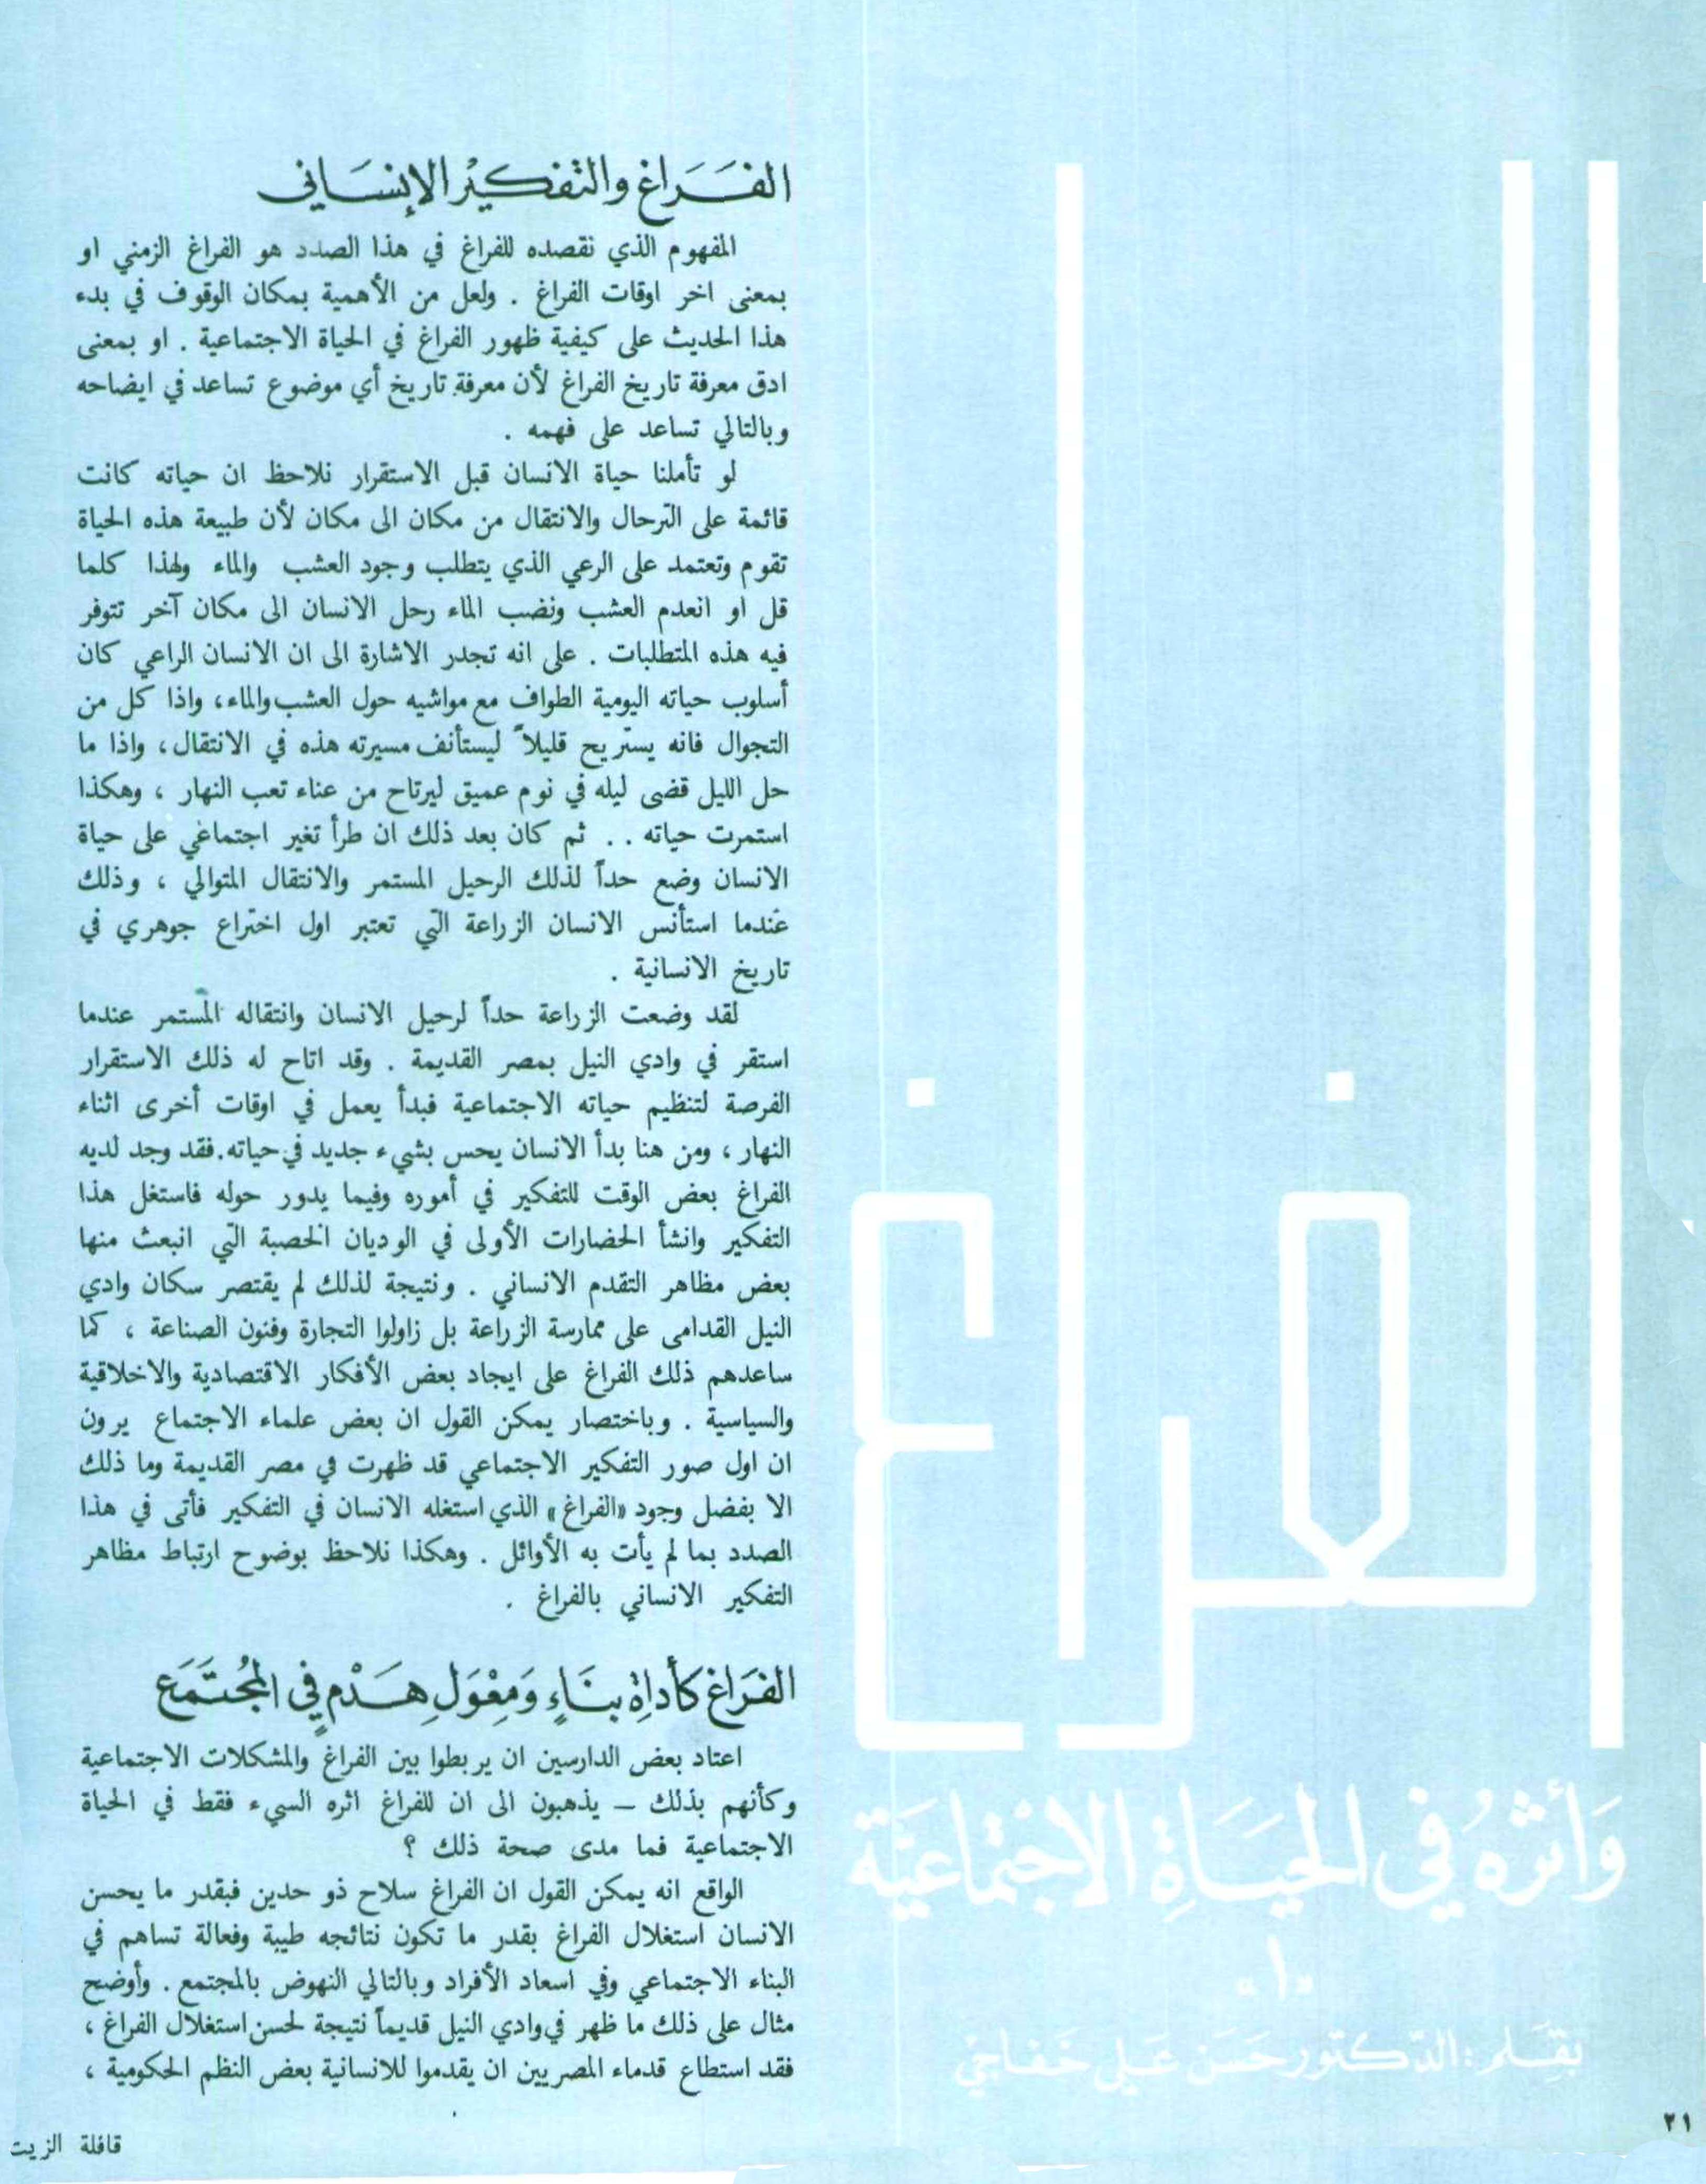 الفراغ
وَأثرهُ في الحيَاةِ الاجْتماعيَّة
«١»
بقَلم : الدّكتور حَسَن عَلي خَفاجي
الفَرَاغ والتفكيْر الإنسَاني
المفهوم الذي نقصده للفراغ في هذا الصدد هو الفراغ الزمني او
بمعنى اخر اوقات الفراغ . ولعل من الأهمية بمكان الوقوف في بدء
هذا الحديث على كيفية ظهور الفراغ في الحياة الاجتماعية . او بمعنى
ادق معرفة تاريخ الفراغ لأن معرفة تاريخ أي موضوع تساعد في ايضاحه
وبالتالي تساعد على فهمه .
لو تأملنا حياة الانسان قبل الاستقرار نلاحظ ان حياته كانت
قائمة على الترحال والانتقال من مكان الى مكان لأن طبيعة هذه الحياة
تقوم وتعتمد على الرعي الذي يتطلب وجود العشب والماء ولهذا كلما
قل او انعدم العشب ونضب الماء رحل الانسان الى مكان آخر تتوفر
فيه هذه المتطلبات . على انه تجدر الاشارة الى ان الانسان الراعي كان
أسلوب حياته اليومية الطواف مع مواشيه حول العشب والماء، واذا كل من
التجوال فانه يستريح قليلاً ليستأنف مسيرته هذه في الانتقال، واذا ما
حل الليل قضى ليله في نوم عميق ليرتاح من عناء تعب النهار ، وهكذا
استمرت حياته . . ثم كان بعد ذلك ان طرأ تغير اجتماعي على حياة
الانسان وضع حداً لذلك الرحيل المستمر والانتقال المتوالي ، وذلك
عندما استأنس الانسان الزراعة التي تعتبر اول اختراع جوهري في
تاريخ الانسانية .
لقد وضعت الزراعة حداً لرحيل الانسان وانتقاله المستمر عندما
استقر في وادي النيل بمصر القديمة . وقد اتاح له ذلك الاستقرار
الفرصة لتنظيم حياته الاجتماعية فبدأ يعمل في اوقات أخرى اثناء
النهار ، ومن هنا بدأ الانسان يحس بشيء جديد في حياته.فقد وجد لديه
الفراغ بعض الوقت للتفكير في أموره وفيما يدور حوله فاستغل هذا
التفكير وانشأ الحضارات الأولى في الوديان الخصبة التي انبعث منها
بعض مظاهر التقدم الانساني . ونتيجة لذلك لم يقتصر سكان وادي
النيل القدامى على ممارسة الزراعة بل زاولوا التجارة وفنون الصناعة ، كما
ساعدهم ذلك الفراغ على ايجاد بعض الأفكار الاقتصادية والاخلاقية
والسياسية . وباختصار يمكن القول ان بعض علماء الاجتماع يرون
ان اول صور التفكير الاجتماعي قد ظهرت في مصر القديمة وما ذلك
الا بفضل وجود «الفراغ» الذي استغله الانسان في التفكير فأتى في هذا
الصدد بما لم يأت به الأوائل . وهكذا نلاحظ بوضوح ارتباط مظاهر
التفكير الانساني بالفراغ .
الفَرَاغ كأداةِ بنَاءٍ وَمِعْوَلِ هَدْمٍ في المجُتَمَع
اعتاد بعض الدارسين ان يربطوا بين الفراغ والمشكلات الاجتماعية
وكأنهم بذلك – يذهبون الى ان للفراغ اثره السيء فقط في الحياة
الاجتماعية فما مدى صحة ذلك ؟
الواقع انه يمكن القول ان الفراغ سلاح ذو حدين فبقدر ما يحسن
الانسان استغلال الفراغ بقدر ما تكون نتائجه طيبة وفعالة تساهم في
البناء الاجتماعي وفي اسعاد الأفراد وبالتالي النهوض بالمجتمع . وأوضح
مثال على ذلك ما ظهر في وادي النيل قديماً نتيجة لحسن استغلال الفراغ ،
فقد استطاع قدماء المصريين ان يقدموا للانسانية بعض النظم الحكومية ،
٢١
قافلة الزيت